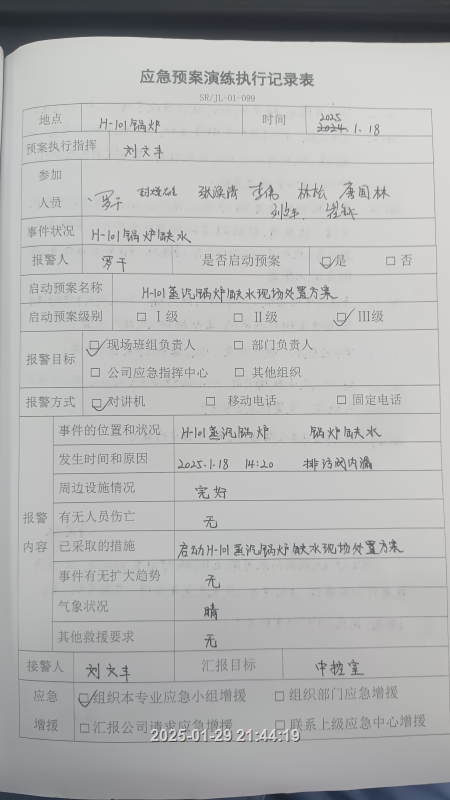 应急预案演练执行记录表
SR/JL-01-099
地点 H-101锅炉 时间 2025 2024.1.18
预案执行指挥 刘文丰
参加人员 罗干 张洪涛 李伟 林松 唐国林
事件状况 H-101锅炉缺水
报警人 罗干 是否启动预案 ☑是 □否
启动预案名称 H-101蒸汽锅炉缺水现场处置方案
启动预案级别 □Ⅰ级 □Ⅱ级 ☑Ⅲ级
报警目标 ☑现场班组负责人 □部门负责人
□公司应急指挥中心 □其他组织
报警方式 ☑对讲机 □移动电话 □固定电话
报警内容
事件的位置和状况 H-101蒸汽锅炉 锅炉缺水
发生时间和原因 2025.1.18 14:20 排污阀内漏
周边设施情况 完好
有无人员伤亡 无
已采取的措施 启动H-101蒸汽锅炉缺水现场处置方案
事件有无扩大趋势 无
气象状况 晴
其他救援要求 无
接警人 刘文丰 汇报目标 中控室
应急增援 ☑组织本专业应急小组增援 □组织部门应急增援
□汇报公司请求应急增援 □联系上级应急中心增援
2025-01-29 21:44:19